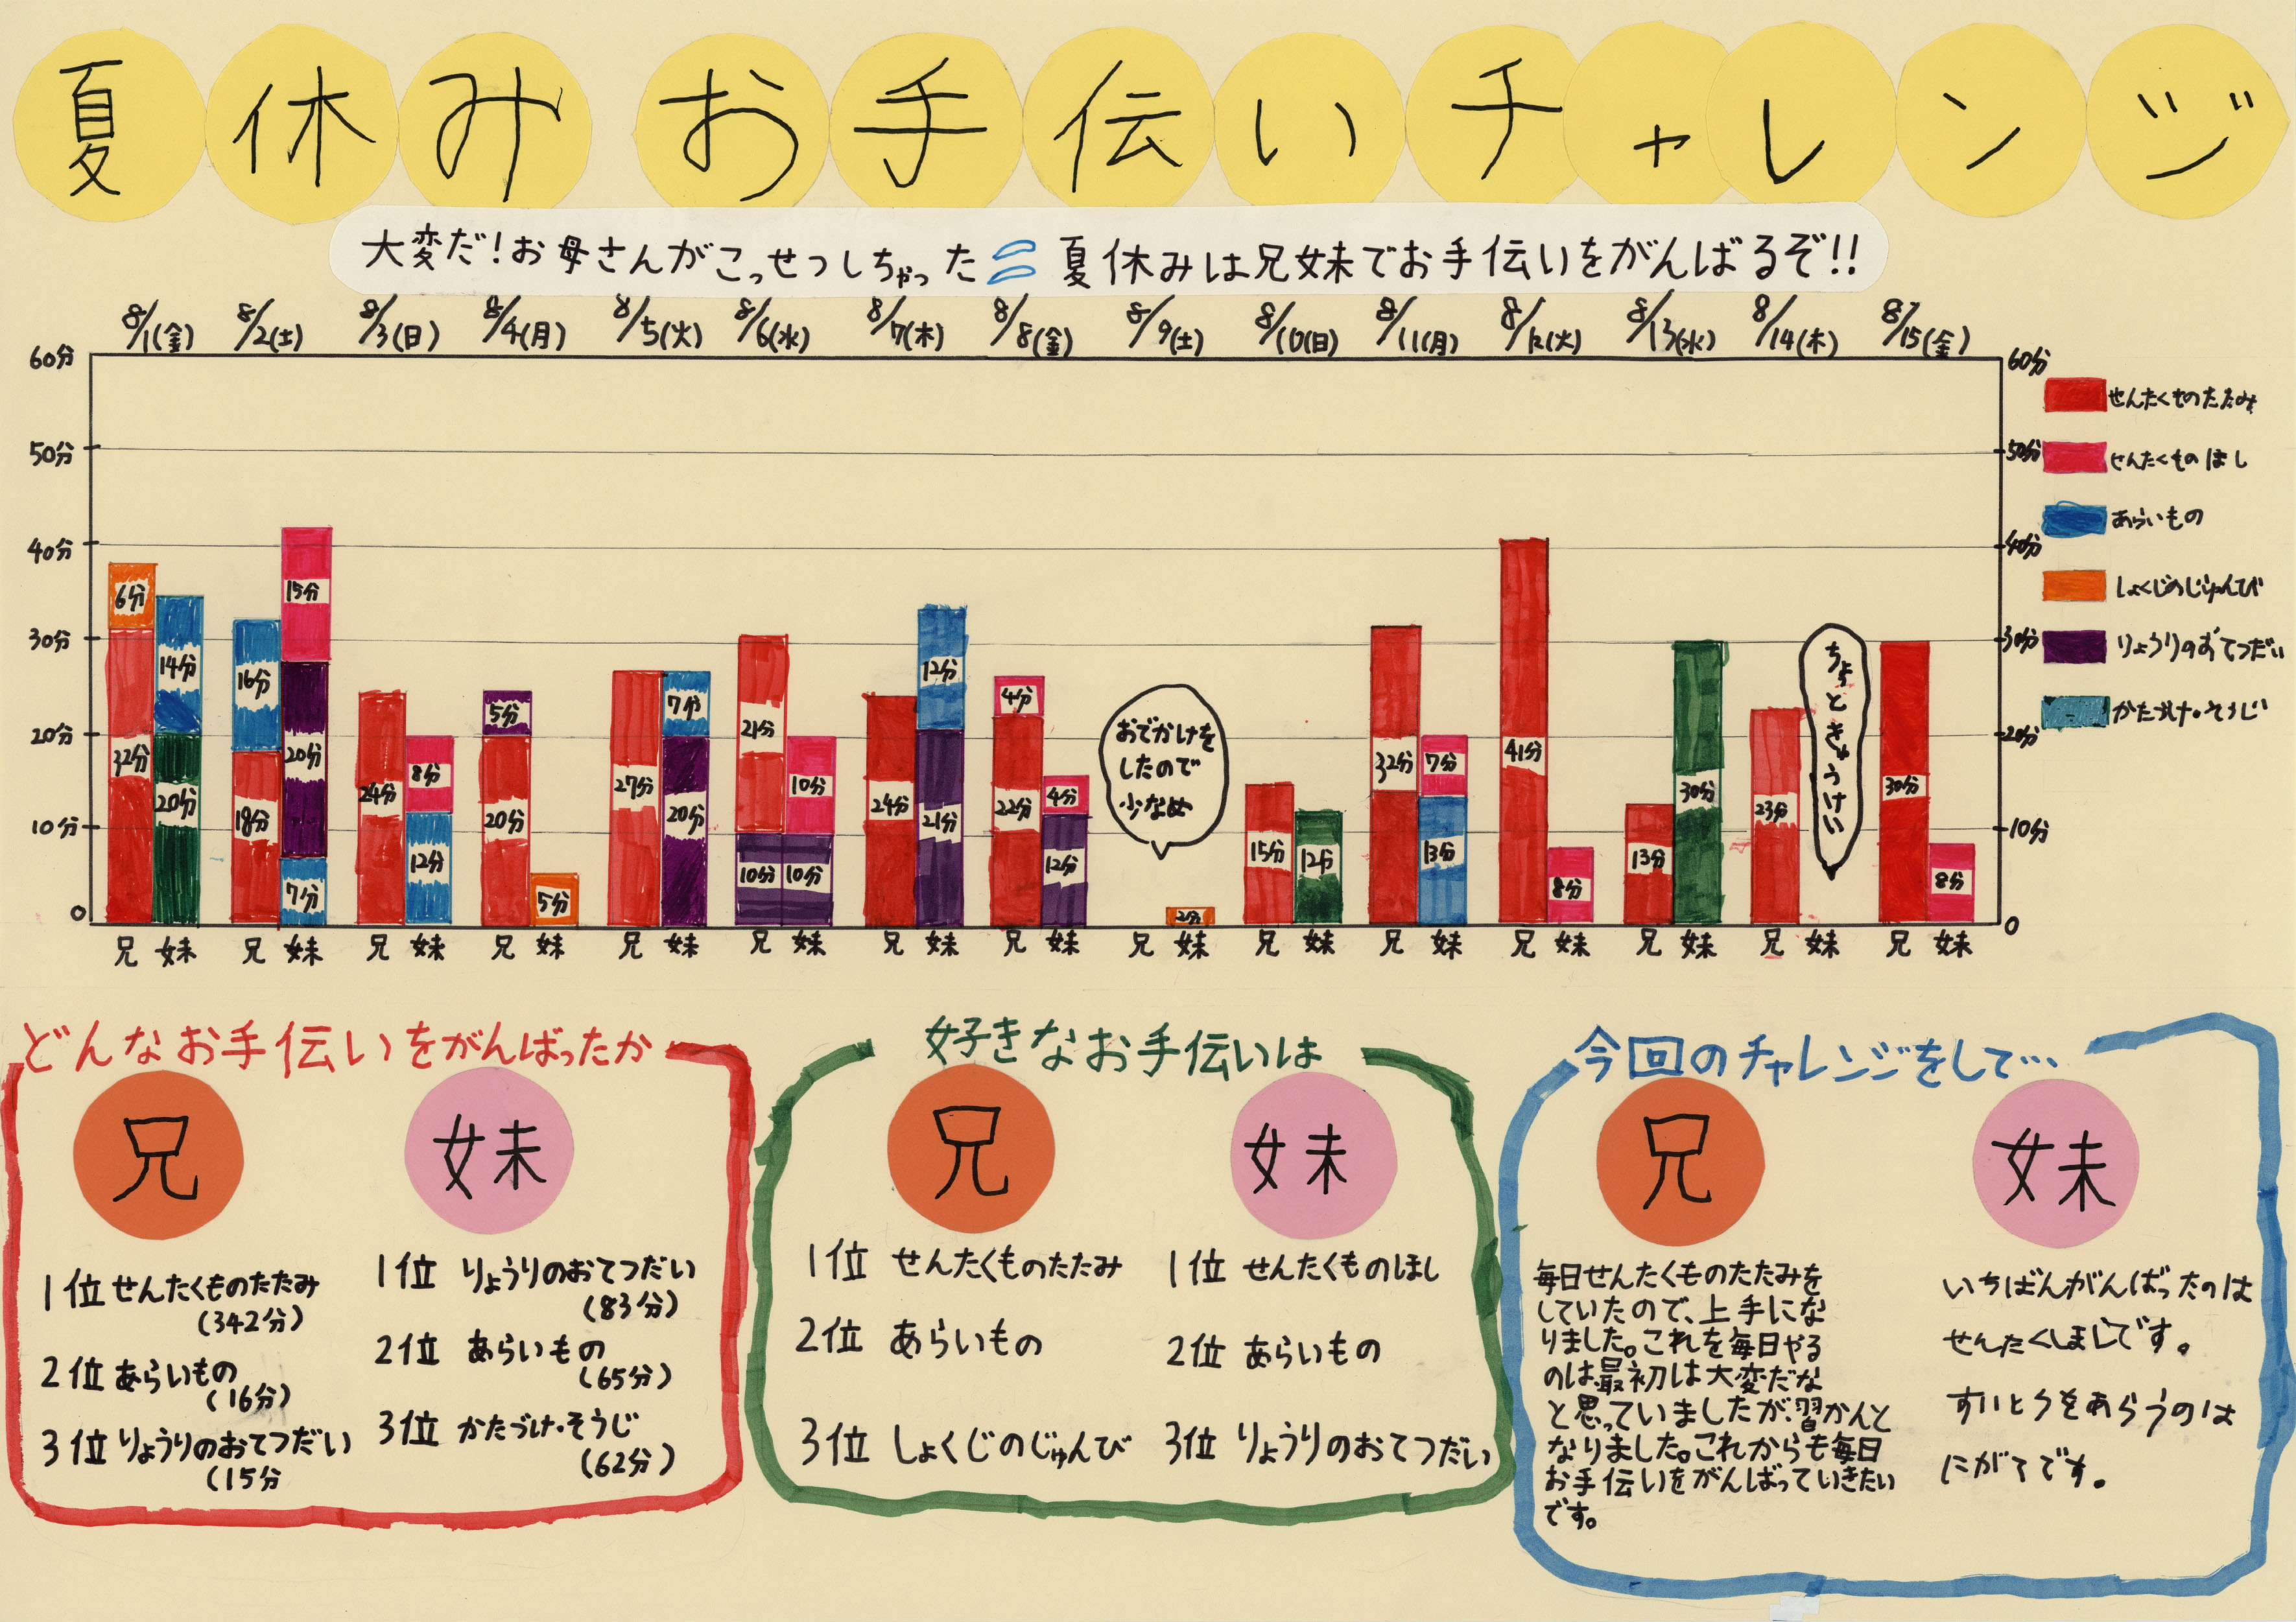 夏休みお手伝いチャレンジ
大変だ!お母さんがこっせつしちゃった 夏休みは兄妹でお手伝いをがんばるぞ!!
8/1(金) 8/2(土) 8/3(日) 8/4(月) 8/5(火) 8/6(水) 8/7(木) 8/8(金) 8/9(土) 8/10(日) 8/11(月) 8/12(火) 8/13(水) 8/14(木) 8/15(金)
60分
50分
40分
30分
20分
10分
0
6分
32分
14分
20分
16分
18分
15分
20分
7分
24分
8分
12分
5分
20分
5分
27分
7分
20分
21分
10分
10分
10分
24分
12分
21分
4分
22分
4分
12分
おでかけを
したので
少なめ
2分
15分
12分
32分
7分
13分
41分
8分
13分
30分
23分
ちょっときゅうけい
30分
8分
60分
50分
40分
30分
20分
10分
0
せんたくものたたみ
せんたくものほし
あらいもの
しょくじのじゅんび
りょうりのおてつだい
かたづけ・そうじ
兄 妹 兄 妹 兄 妹 兄 妹 兄 妹 兄 妹 兄 妹 兄 妹 兄 妹 兄 妹 兄 妹 兄 妹 兄 妹 兄 妹 兄 妹
どんなお手伝いをがんばったか
兄
1位 せんたくものたたみ
(342分)
2位 あらいもの
(16分)
3位 りょうりのおてつだい
(15分
妹
1位 りょうりのおてつだい
(83分)
2位 あらいもの
(65分)
3位 かたづけ・そうじ
(62分)
好きなお手伝いは
兄
1位 せんたくものたたみ
2位 あらいもの
3位 しょくじのじゅんび
妹
1位 せんたくものほし
2位 あらいもの
3位 りょうりのおてつだい
今回のチャレンジをして…
兄
毎日せんたくものたたみを
していたので、上手にな
りました。これを毎日やる
のは最初は大変だな
と思っていましたが、習かんと
なりました。これからも毎日
お手伝いをがんばっていきたい
です。
妹
いちばんがんばったのは
せんたくほしです。
すいとうをあらうのは
にがてです。